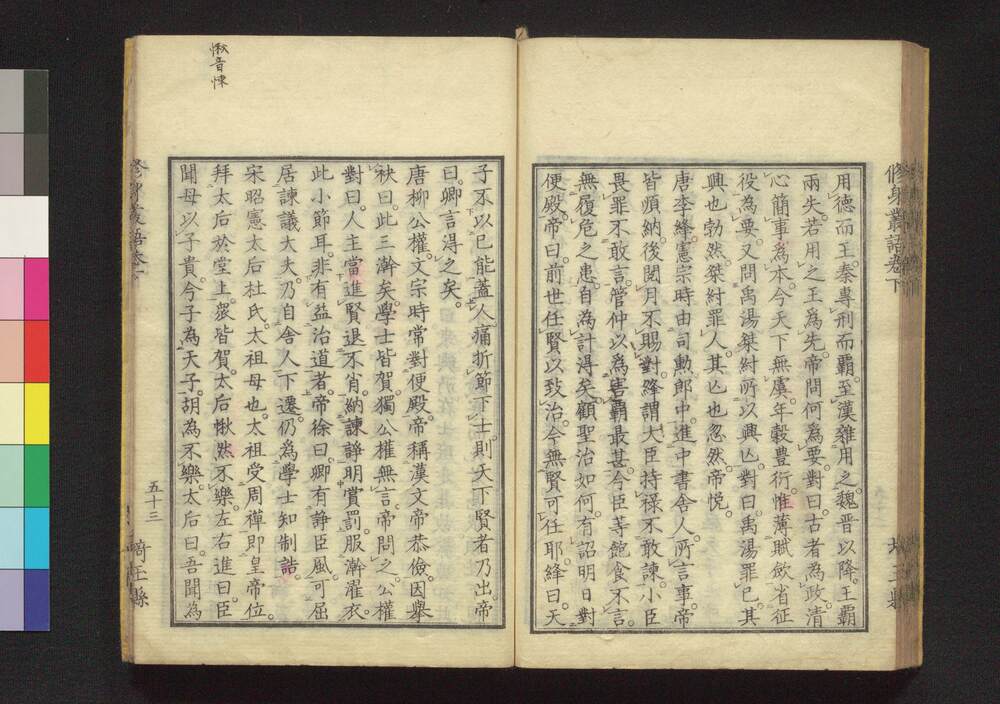 修身叢語卷下
用德而王。秦專刑而覇。至漢雜用之。魏晉以降。王覇
兩失。若用之王為先。帝問何為要。對曰。古者為政。清
心簡事為本。今天下無虞。年穀豊衍。惟薄賦歛。省征
役為要。又問禹湯桀紂所以興亾。對曰。禹湯罪已。其
興也勃然。桀紂罪人。其亾也忽然。帝悅。
唐李絳憲宗時由司勲郎中。進中書舎人。所言事。帝
皆頫納。後閱月不賜對。絳謂大臣持禄不敢諫。小臣
畏罪不敢言。管仲以為害覇最甚。今臣等飽食不言。
無履危之患。自為計得矣。顧聖治如何。有詔明日對
便殿。帝曰。前世任賢以致治。今無賢可任耶。絳曰。天
子不以已能蓋人。痛折節下士。則天下賢者乃出。帝
曰。卿言得之矣。
唐柳公權。文宗時常對便殿。帝稱漢文帝恭儉。因舉
袂曰。此三澣矣。學士皆賀。獨公權無言。帝問之。公權
對曰。人主當進賢退不肖。納諫諍明賞罰。服澣濯衣。
此小節耳。非有益治道者。帝徐曰。卿有諍臣風。可屈
居諫議大夫。乃自舎人下遷。仍為學士知制誥。
宋昭憲太后杜氏。太祖母也。太祖受周禪即皇帝位。
拜太后於堂上。衆皆賀。太后愀然不樂。左右進曰。臣
聞母以子貴。今子為天子。胡為不樂。太后曰。吾聞為
愀音悚
五十三
埼玉縣